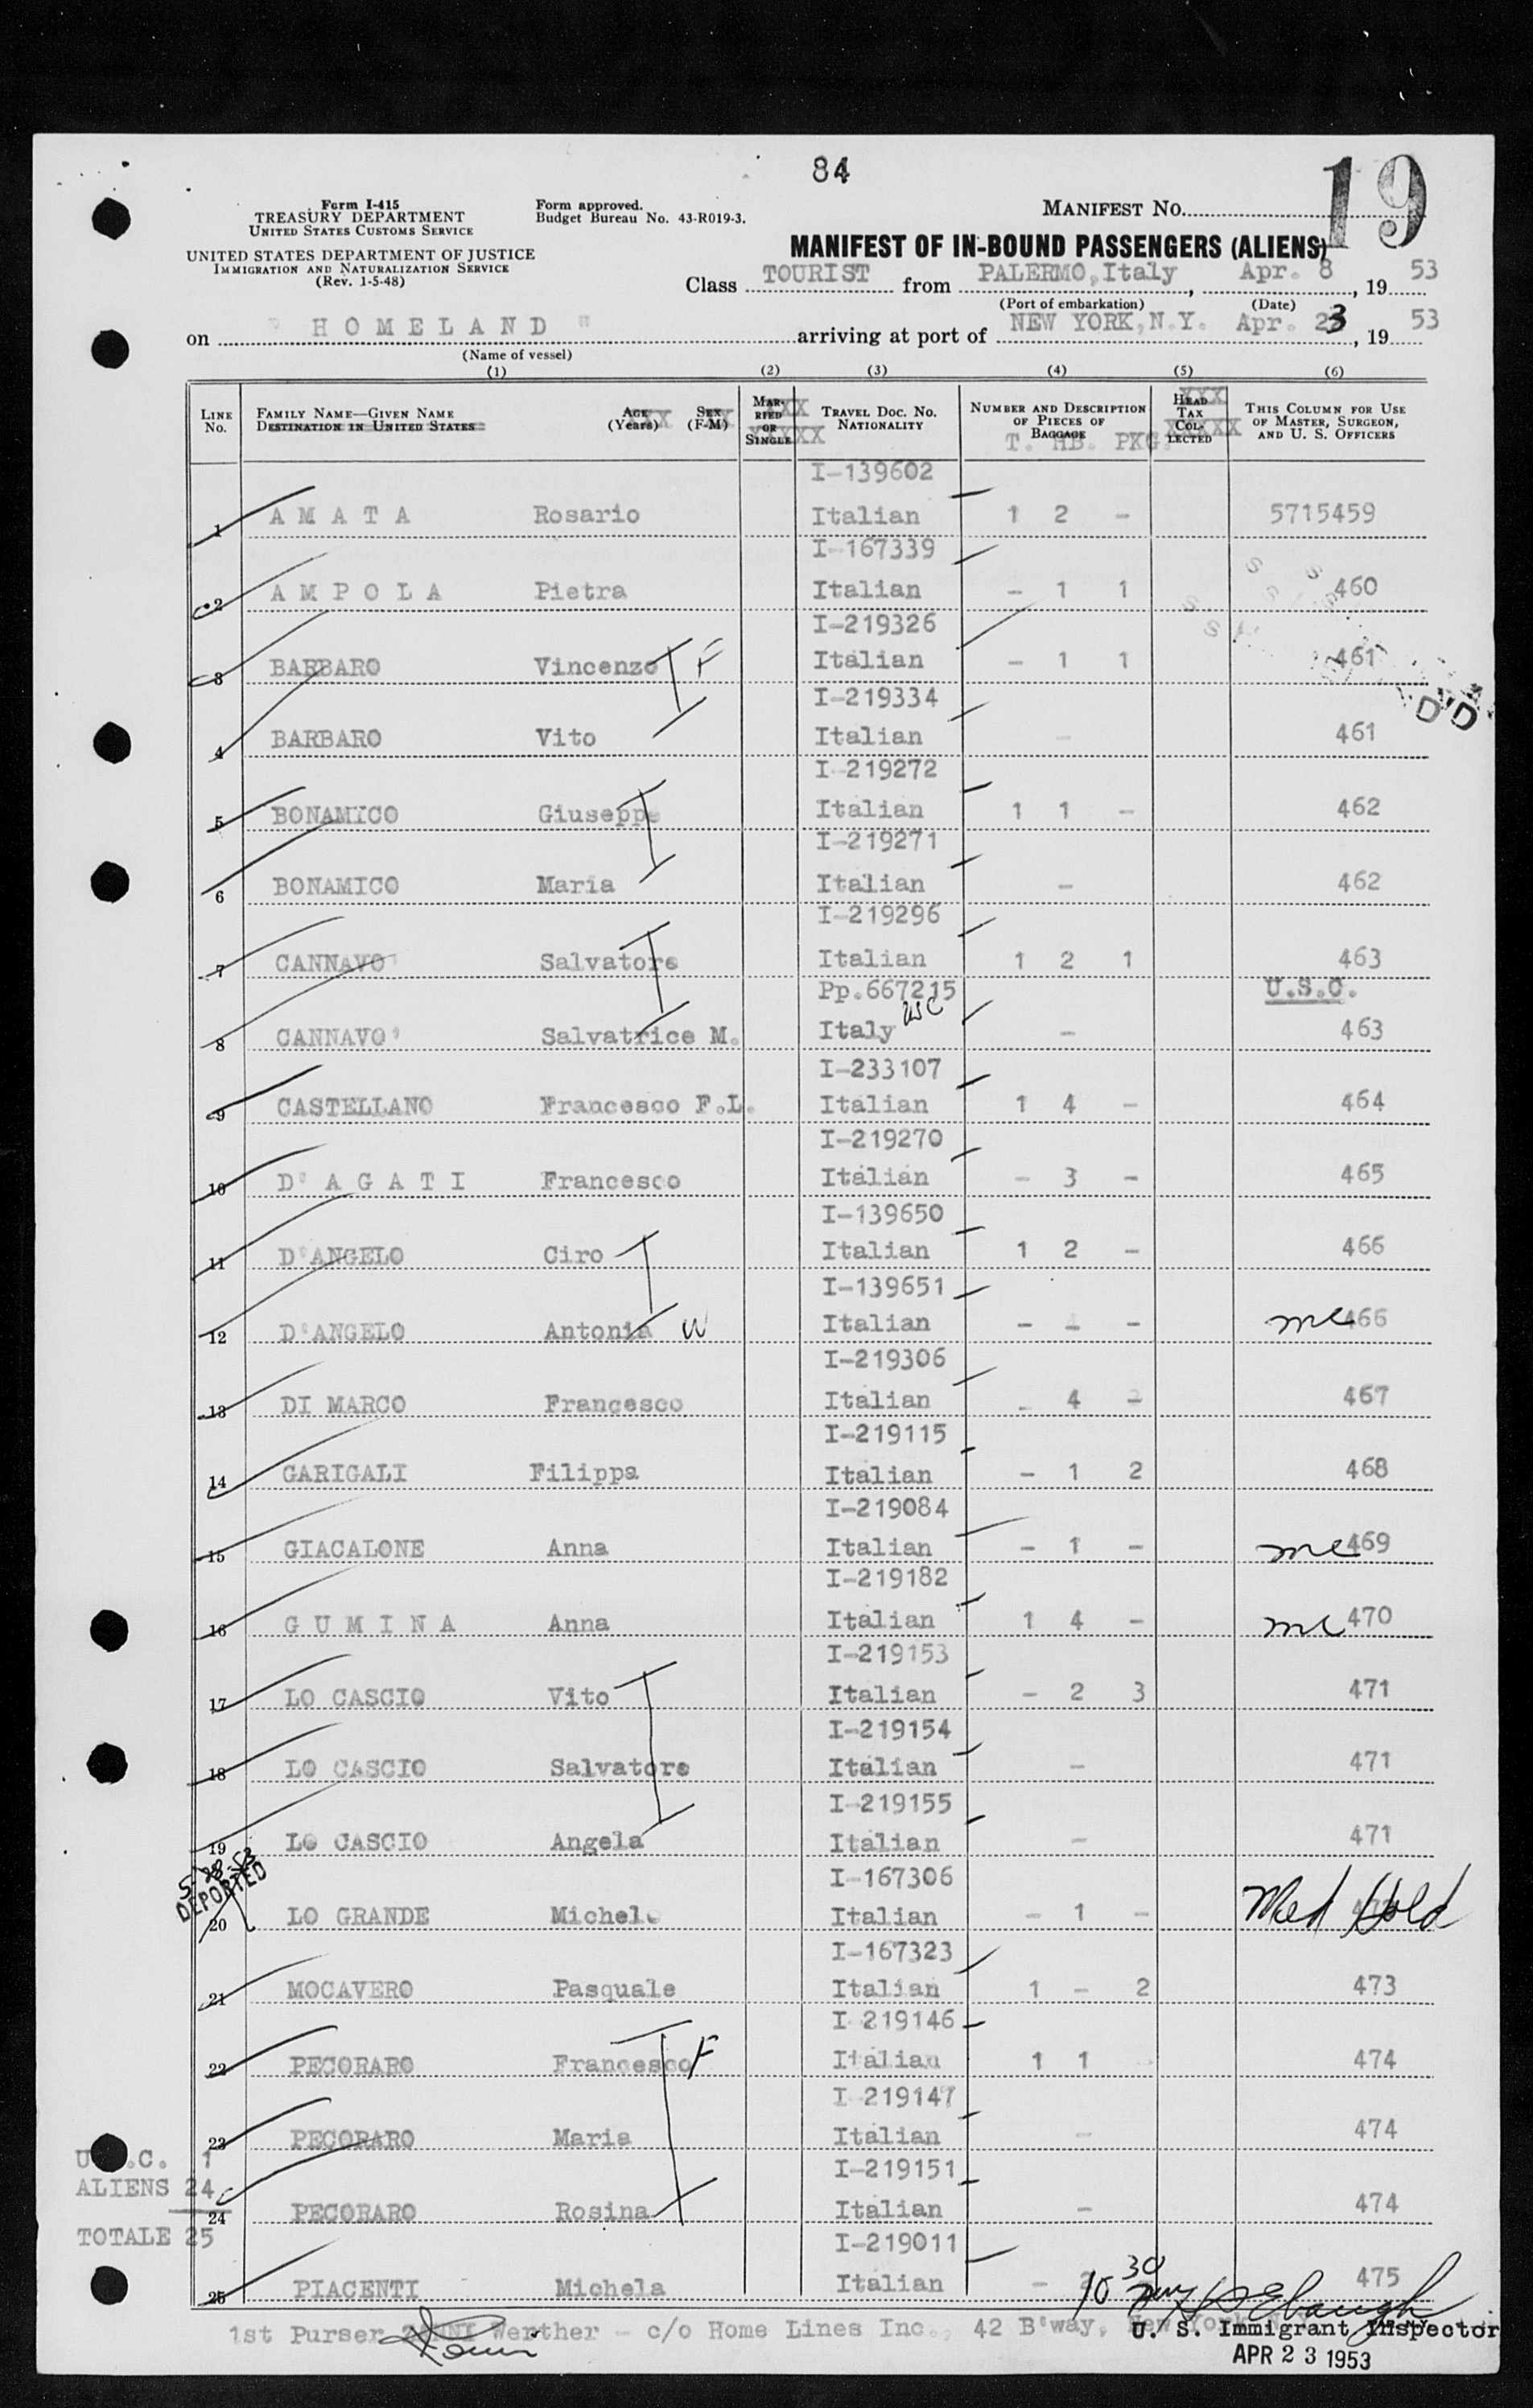 84
19
Form I-415
TREASURY DEPARTMENT
UNITED STATES CUSTOMS SERVICE
Form approved.
Budget Bureau No. 43-R019-3.
MANIFEST NO.
UNITED STATES DEPARTMENT OF JUSTICE
IMMIGRATION AND NATURALIZATION SERVICE
(Rev. 1-5-48)
MANIFEST OF IN-BOUND PASSENGERS (ALIENS)
Class TOURIST from PALERMO, Italy, Apr. 8, 19 53
(Port of embarkation) (Date)
on " H O M E L A N D " arriving at port of NEW YORK, N.Y. Apr. 23, 19 53
(Name of vessel)
(1) (2) (3) (4) (5) (6)
LINE No. FAMILY NAME—GIVEN NAME DESTINATION IN UNITED STATES AGE (Years) SEX (F-M) MARRIED OR SINGLE TRAVEL DOC. NO. NATIONALITY NUMBER AND DESCRIPTION OF PIECES OF BAGGAGE HEAD TAX COLLECTED THIS COLUMN FOR USE OF MASTER, SURGEON, AND U. S. OFFICERS
T. HB. PKG.
I-139602
1 A M A T A Rosario Italian 1 2 - 5715459
I-167339
2 A M P O L A Pietra Italian - 1 1 460
I-219326
3 BARBARO Vincenzo F Italian - 1 1 461
I-219334
4 BARBARO Vito Italian - 461
I-219272
5 BONAMICO Giuseppe Italian 1 1 - 462
I-219271
6 BONAMICO Maria Italian - 462
I-219296
7 CANNAVO' Salvatore Italian 1 2 1 463
Pp.667215 U.S.C.
8 CANNAVO' Salvatrice M. Italy USC - 463
I-233107
9 CASTELLANO Francesco F.L. Italian 1 4 - 464
I-219270
10 D' A G A T I Francesco Italian - 3 - 465
I-139650
11 D'ANGELO Ciro Italian 1 2 - 466
I-139651
12 D'ANGELO Antonia W Italian - - - mc 466
I-219306
13 DI MARCO Francesco Italian - 4 - 467
I-219115
14 GARIGALI Filippa Italian - 1 2 468
I-219084
15 GIACALONE Anna Italian - 1 - mc 469
I-219182
16 G U M I N A Anna Italian 1 4 - mc 470
I-219153
17 LO CASCIO Vito Italian - 2 3 471
I-219154
18 LO CASCIO Salvatore Italian - 471
I-219155
19 LO CASCIO Angela Italian - 471
5-28-53
DEPORTED
I-167306
20 LO GRANDE Michele Italian - 1 - Med Hold
I-167323
21 MOCAVERO Pasquale Italian 1 - 2 473
I 219146
22 PECORARO Francesco F Italian 1 1 474
I 219147
23 PECORARO Maria Italian - 474
U.S.C. 1
I-219151
ALIENS 24
24 PECORARO Rosina Italian - 474
TOTALE 25
I-219011
25 PIACENTI Michela Italian - 475
10 30
1st Purser Werther - c/o Home Lines Inc., 42 B'way, New York
U. S. Immigrant Inspector
APR 23 1953